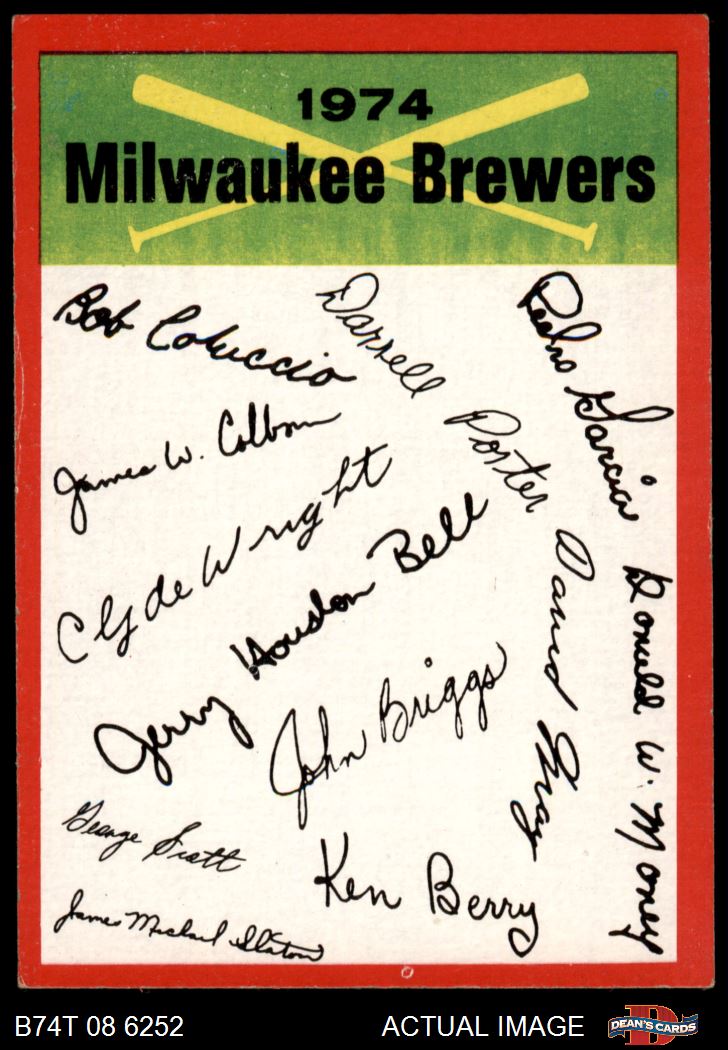 1974
Milwaukee Brewers
Bob Coluccio
Darrell Porter
Pedro Garcia
James W. Colborn
Clyde Wright
Jerry Houston Bell
David May
Donald W. Money
John Briggs
George Scott
Ken Berry
James Michael Slaton
B74T 08 6252
ACTUAL IMAGE
D
DEAN'S CARDS